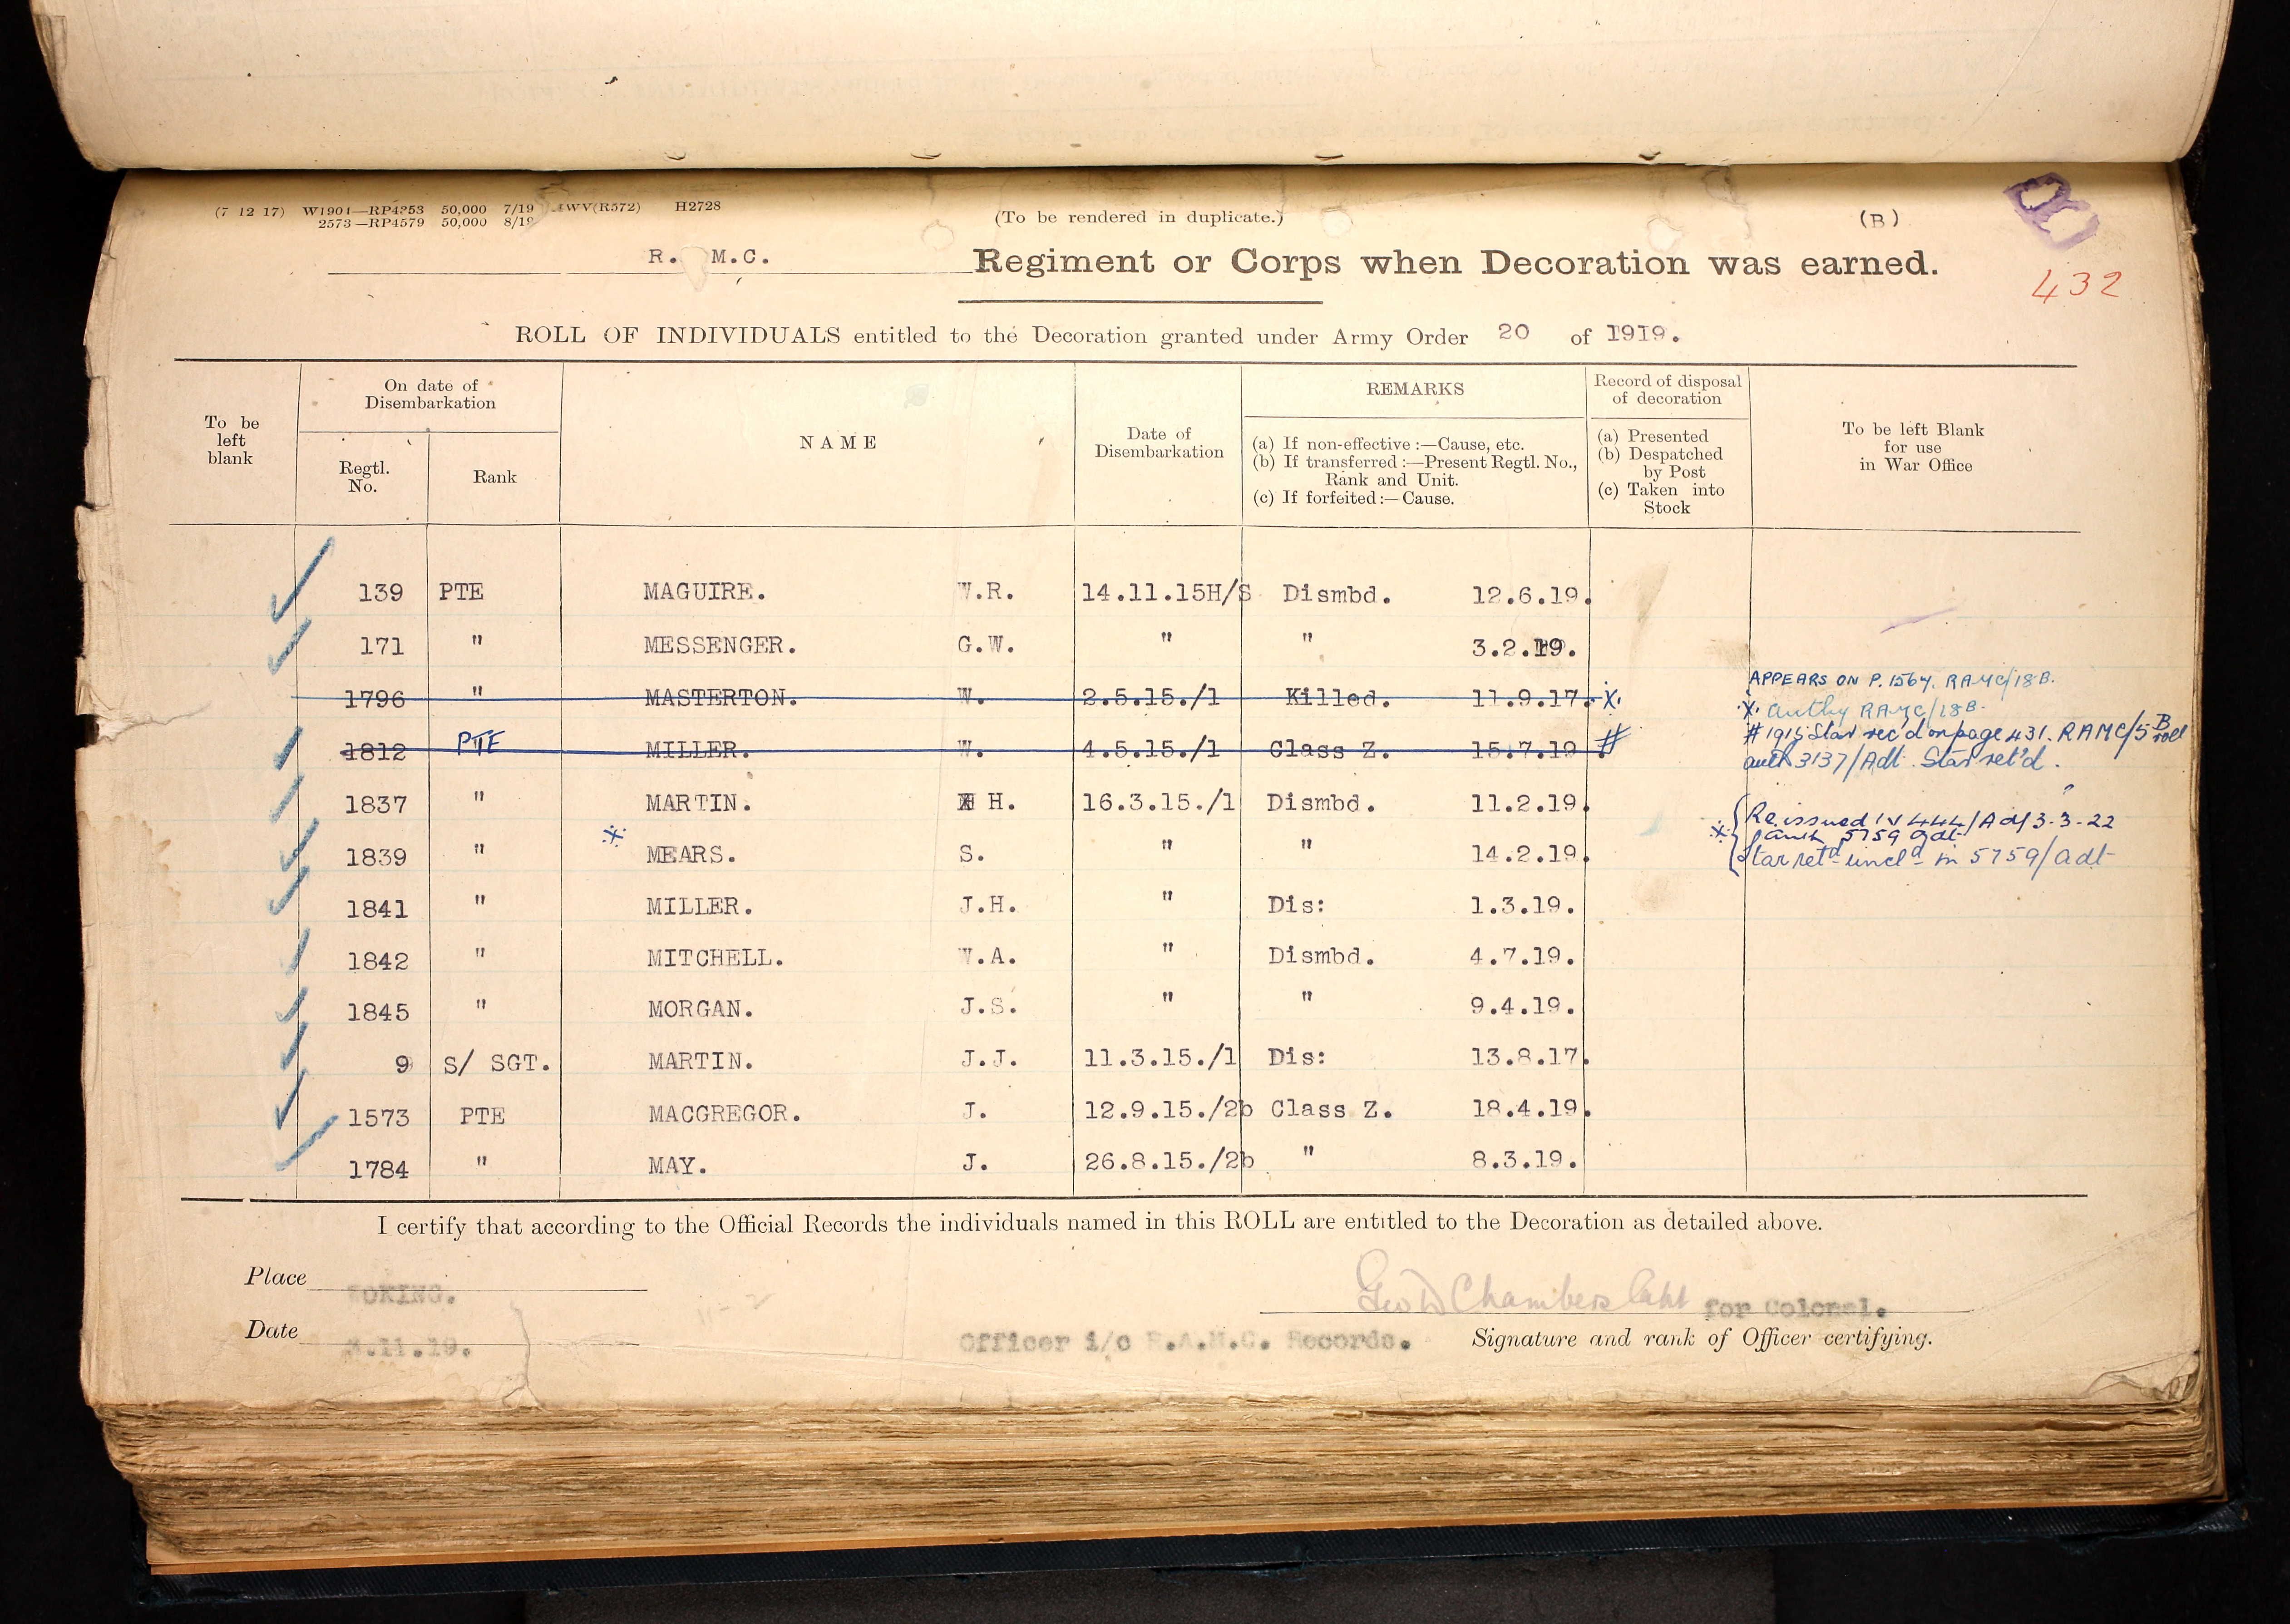 (7 12 17) W1901—RP4353 50,000 7/19 HWV(R572) H2728
2573—RP4579 50,000 8/19
(To be rendered in duplicate.)
(B)
432
R. M.C. Regiment or Corps when Decoration was earned.
ROLL OF INDIVIDUALS entitled to the Decoration granted under Army Order 20 of 1919.
To be left blank
On date of Disembarkation
Regtl. No.
Rank
NAME
Date of Disembarkation
REMARKS
(a) If non-effective :—Cause, etc.
(b) If transferred :—Present Regtl. No., Rank and Unit.
(c) If forfeited :—Cause.
Record of disposal of decoration
(a) Presented
(b) Despatched by Post
(c) Taken into Stock
To be left Blank for use in War Office
139 PTE MAGUIRE. W.R. 14.11.15H/S Dismbd. 12.6.19.
171 " MESSENGER. G.W. " " 3.2.19.
1796 " MASTERTON. W. 2.5.15./1 Killed. 11.9.17. X.
APPEARS ON P. 1567. RAMC/18B.
X. Authy RAMC/18B.
1812 PTE MILLER. W. 4.5.15./1 Class Z. 15.7.19. #
# 1915 Star rec'd on page 431. RAMC/5 B roll
auth 3137/Adt. Star ret'd.
1837 " MARTIN. H. 16.3.15./1 Dismbd. 11.2.19.
1839 " MEARS. S. " " 14.2.19.
Re issued IV 444/Adt 3-3-22
auth 5759 adt
Star retd uncld in 5759/adt
1841 " MILLER. J.H. " Dis: 1.3.19.
1842 " MITCHELL. W.A. " Dismbd. 4.7.19.
1845 " MORGAN. J.S. " " 9.4.19.
9 S/ SGT. MARTIN. J.J. 11.3.15./1 Dis: 13.8.17.
1573 PTE MACGREGOR. J. 12.9.15./2b Class Z. 18.4.19.
1784 " MAY. J. 26.8.15./2b " 8.3.19.
I certify that according to the Official Records the individuals named in this ROLL are entitled to the Decoration as detailed above.
Place WOKING.
Geo D Chambers Capt for Colonel.
Date .11.19.
Officer i/c R.A.M.C. Records. Signature and rank of Officer certifying.